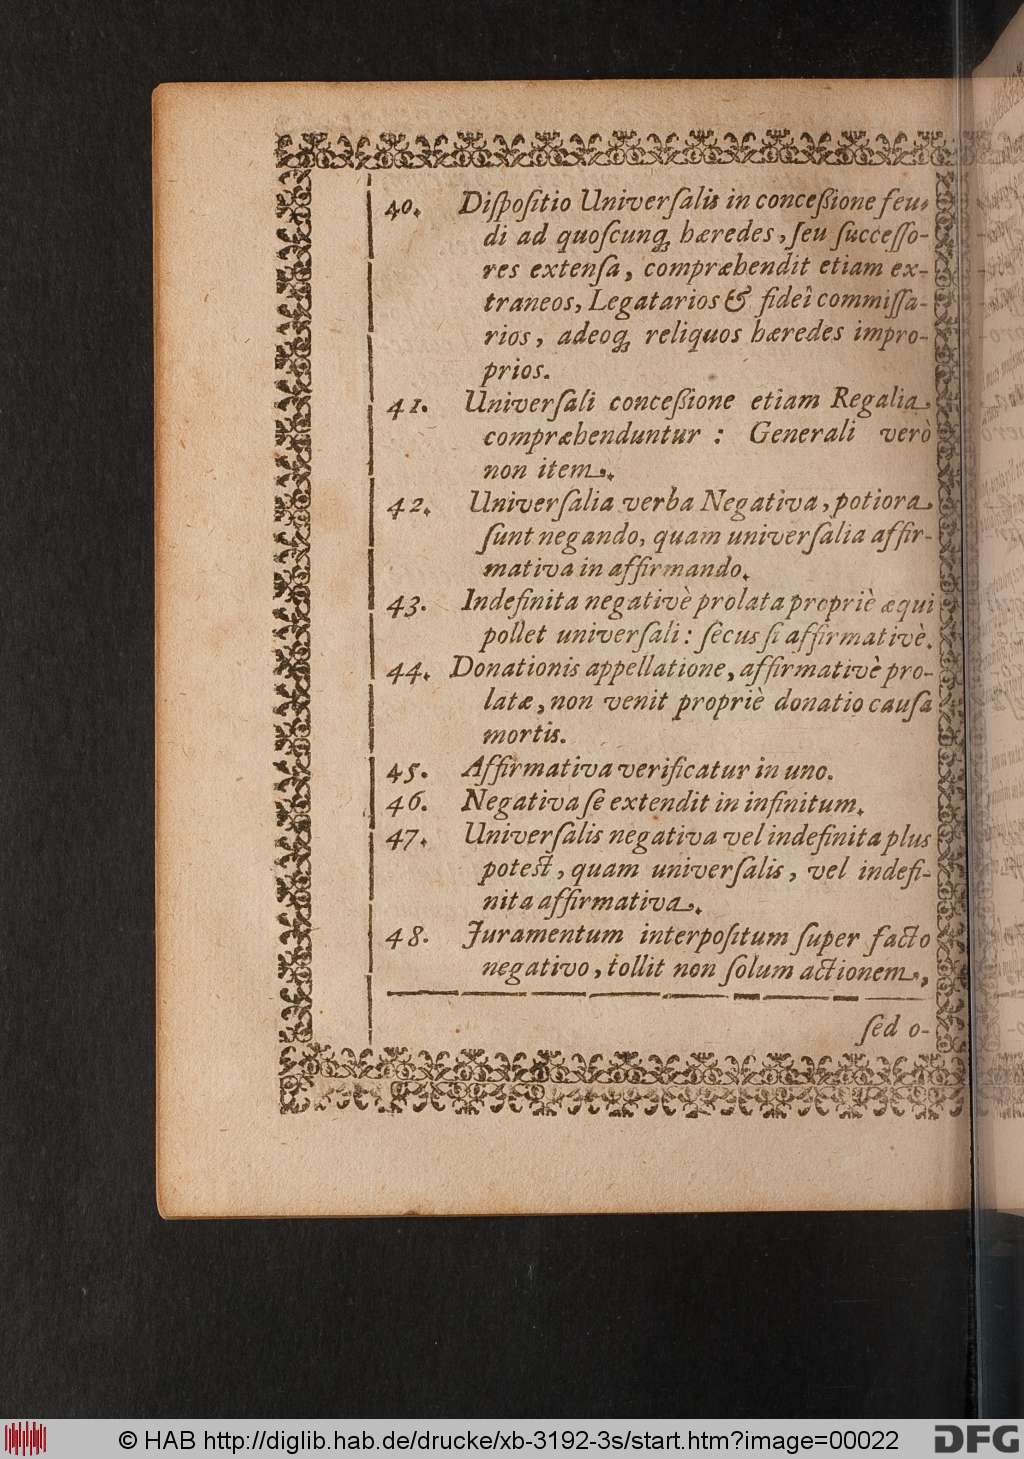 40. Diſpoſitio Univerſalis in conceßione feu-
di ad quoſcunq; hæredes, ſeu ſucceſſo-
res extenſa, compræhendit etiam ex-
traneos, Legatarios & fidei commiſſa-
rios, adeoq; reliquos hæredes impro-
prios.
41. Univerſali conceßione etiam Regalia
compræhenduntur : Generali verò
non item.
42. Univerſalia verba Negativa, potiora
ſunt negando, quam univerſalia affir-
mativa in affirmando.
43. Indefinita negativè prolata propriè æqui
pollet univerſali: ſecus ſi affirmativè.
44. Donationis appellatione, affirmativè pro-
latæ, non venit propriè donatio cauſa
mortis.
45. Affirmativa verificatur in uno.
46. Negativa ſe extendit in infinitum.
47. Univerſalis negativa vel indefinita plus
poteſt, quam univerſalis, vel indefi-
nita affirmativa.
48. Juramentum interpoſitum ſuper facto
negativo, tollit non ſolum actionem,
ſed o-
© HAB http://diglib.hab.de/drucke/xb-3192-3s/start.htm?image=00022
DFG